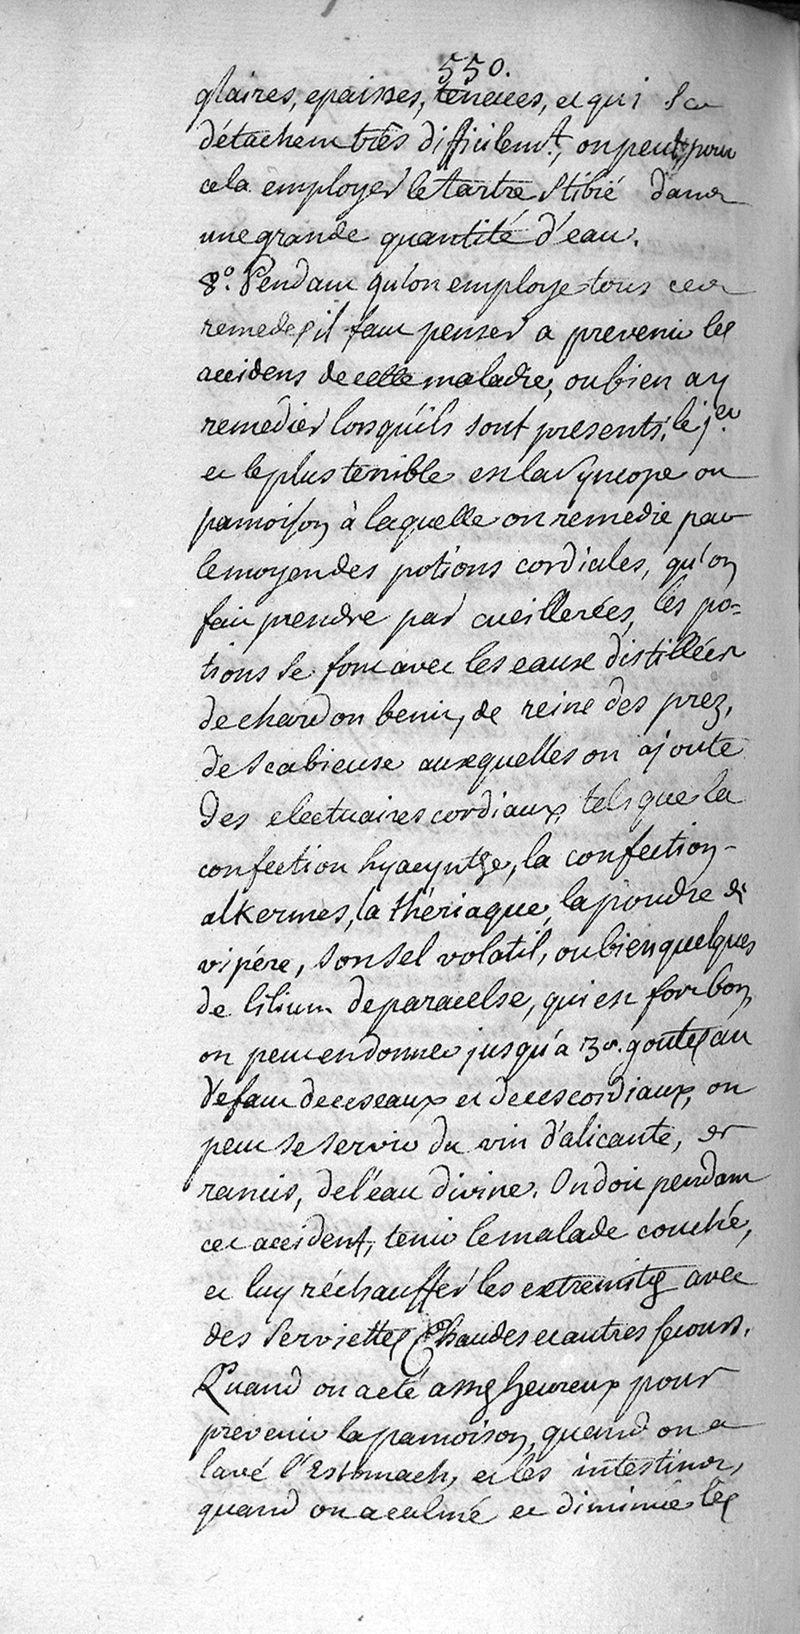 550.
glaires, epaisses, tenaces, et qui se
détachent très difficilemt, on peut pour
cela employer le tartre stibié dans
une grande quantité d'eau.
8º. Pendant qu'on employe tous ces
remedes il faut penser a prevenir les
accidens de cette maladie, ou bien a y
remedier lorsqu'ils sont presents, le 1er.
et le plus terrible est la syncope ou
pamoison à laquelle on remedie par
le moyen des potions cordiales, qu'on
fait prendre par cueillerées, les po=
tions se font avec les eaux distillées
de chardon benit, de reine des prez,
de scabieuse auxquelles on ajoute
des electuaires cordiaux tels que la
confection hyacynthe, la confection
alkermes, la thériaque, la poudre de
vipére, son sel volatil, ou bien quelques
de lilium de paracelse, qui est fort bon,
on peut en donner jusqu'a 30. goutes au
défaut de ces eaux et de ces cordiaux, on
peut se servir du vin d'alicante, et
rancis, de l'eau divine. On doit pendant
cet accident, tenir le malade couché,
et luy réchauffer les extremités avec
des serviettes chaudes et autres secours.
Quand on a eté assés heureux pour
prevenir la pamoison, quand on a
lavé l'Estomach, et les intestins,
quand on a calmé et diminué les